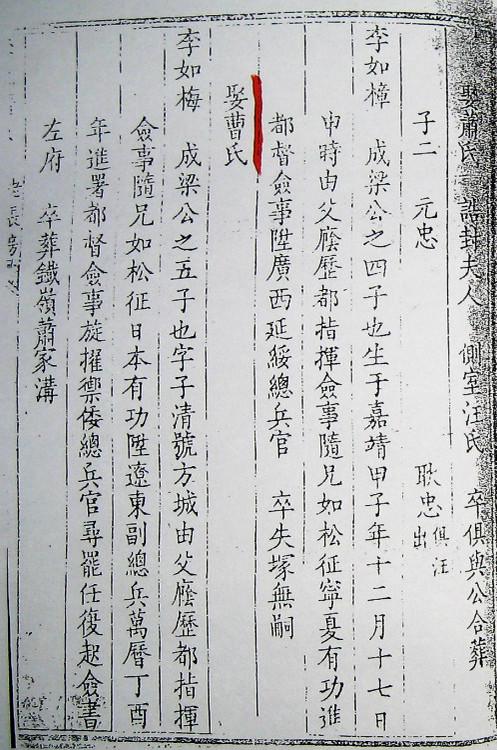 娶蕭氏 誥封夫人 側室汪氏 卒俱與公合葬
子二 元忠 耿忠 俱汪出
李如樟 成梁公之四子也生于嘉靖甲子年十二月十七日
申時由父廕歷都指揮僉事隨兄如松征寧夏有功進
都督僉事陞廣西延綏總兵官 卒失塚無嗣
娶曹氏
李如梅 成梁公之五子也字子清號方城由父廕歷都指揮
僉事隨兄如松征日本有功陞遼東副總兵萬曆丁酉
年進署都督僉事旋擢禦倭總兵官尋罷任復起僉書
左府 卒葬鐵嶺蕭家溝